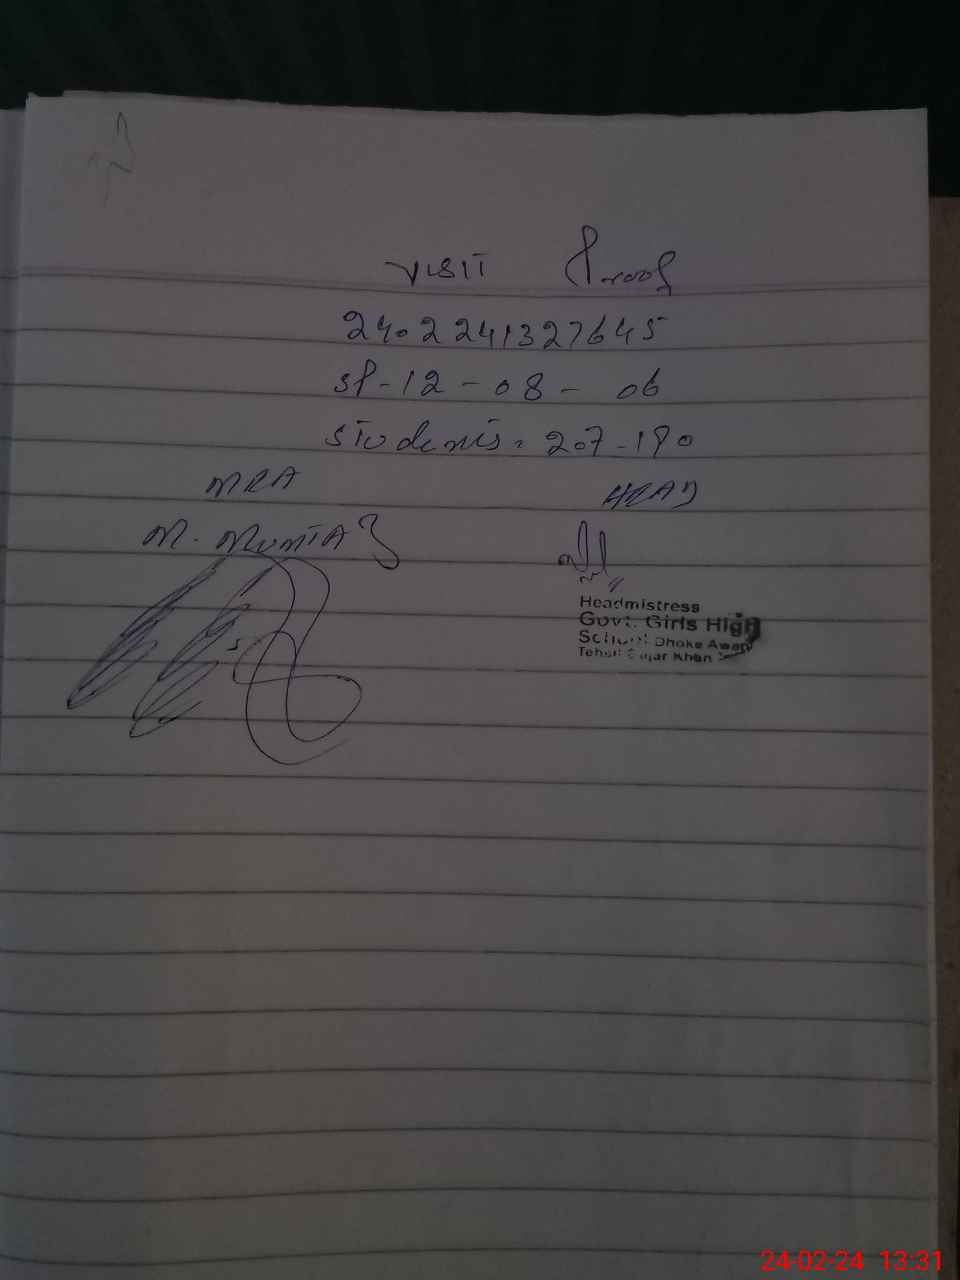 VISIT Proof
2402241327645
SP-12-08-06
STUdents: 207-190
MEA HEAD
M. MUMTAZ
Headmistress
Govt. Girls High
School Dhoke Awan
Tehsil Gujar Khan
24-02-24 13:31